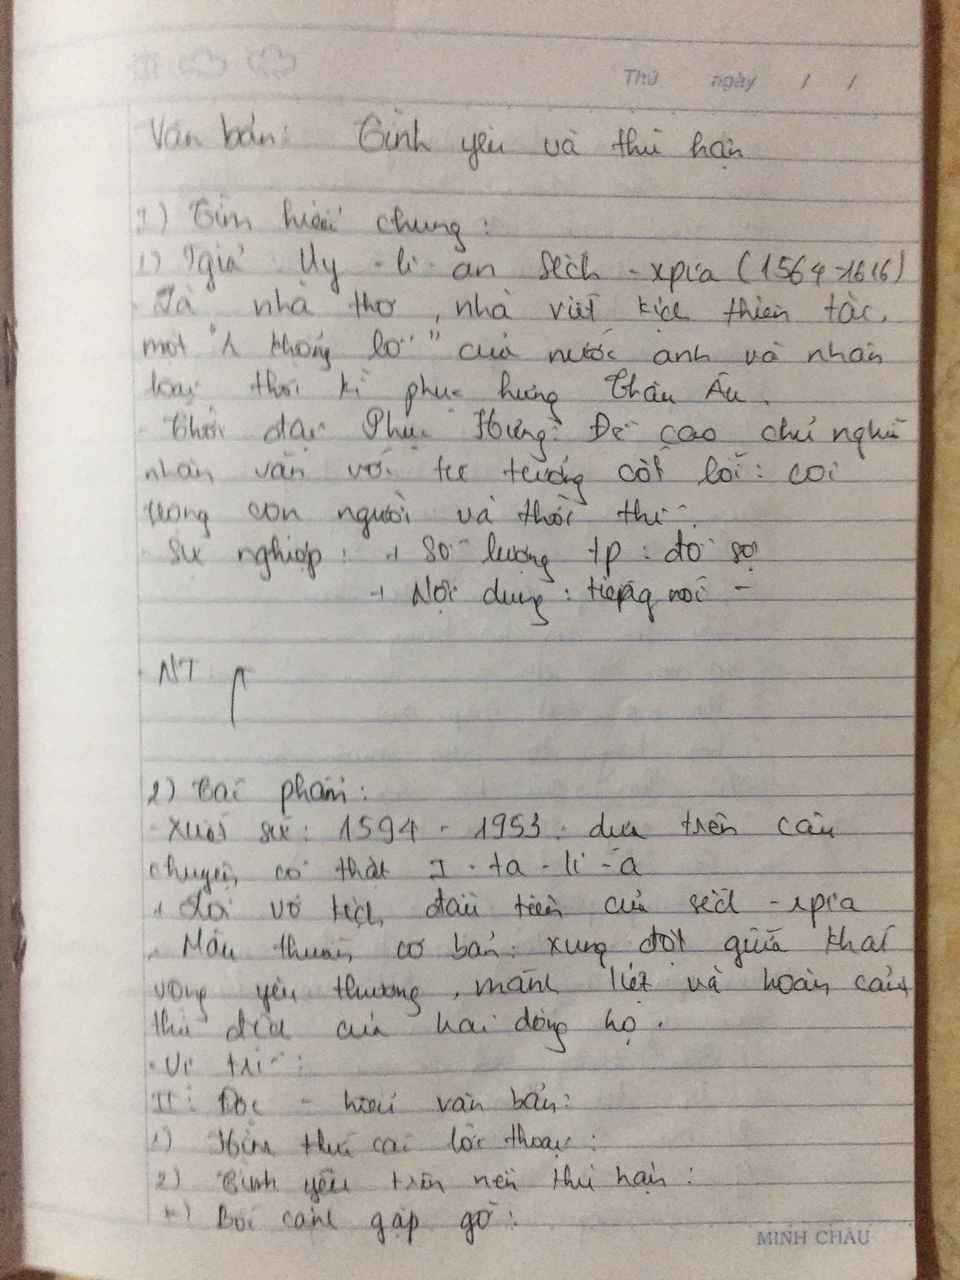 Thứ ngày / /
Văn bản: Tình yêu và thù hận
I) Tìm hiểu chung:
1) Tgiả Uy - li - am Sếch - xpia (1564-1616)
- Là nhà thơ, nhà viết kịch thiên tài,
một " khổng lồ" của nước anh và nhân
loại thời kì phục hưng Châu Âu.
- Thời đại Phục Hưng: Đề cao chủ nghĩa
nhân văn với tư tưởng cốt lõi: coi
trọng con người và
- Sự nghiệp: + Số lượng tp: đồ sộ
+ Nội dung: tiếng nói -
- NT
2) Tác phẩm:
- Xuất xứ: 1594 - 1953: dựa trên câu
chuyện có thật I - ta - li - a
vở kịch đầu tiên của sếch - xpia
- Mâu thuẫn cơ bản: xung đột giữa khát
vọng yêu thương, mãnh liệt và hoàn cảnh
thù địch của hai dòng họ.
- Vị trí:
II: Đọc - hiểu văn bản:
1) Hình thức các lời thoại:
2) Tình yêu trên nền thù hận:
Bối cảnh gặp gỡ:
MINH CHÂU